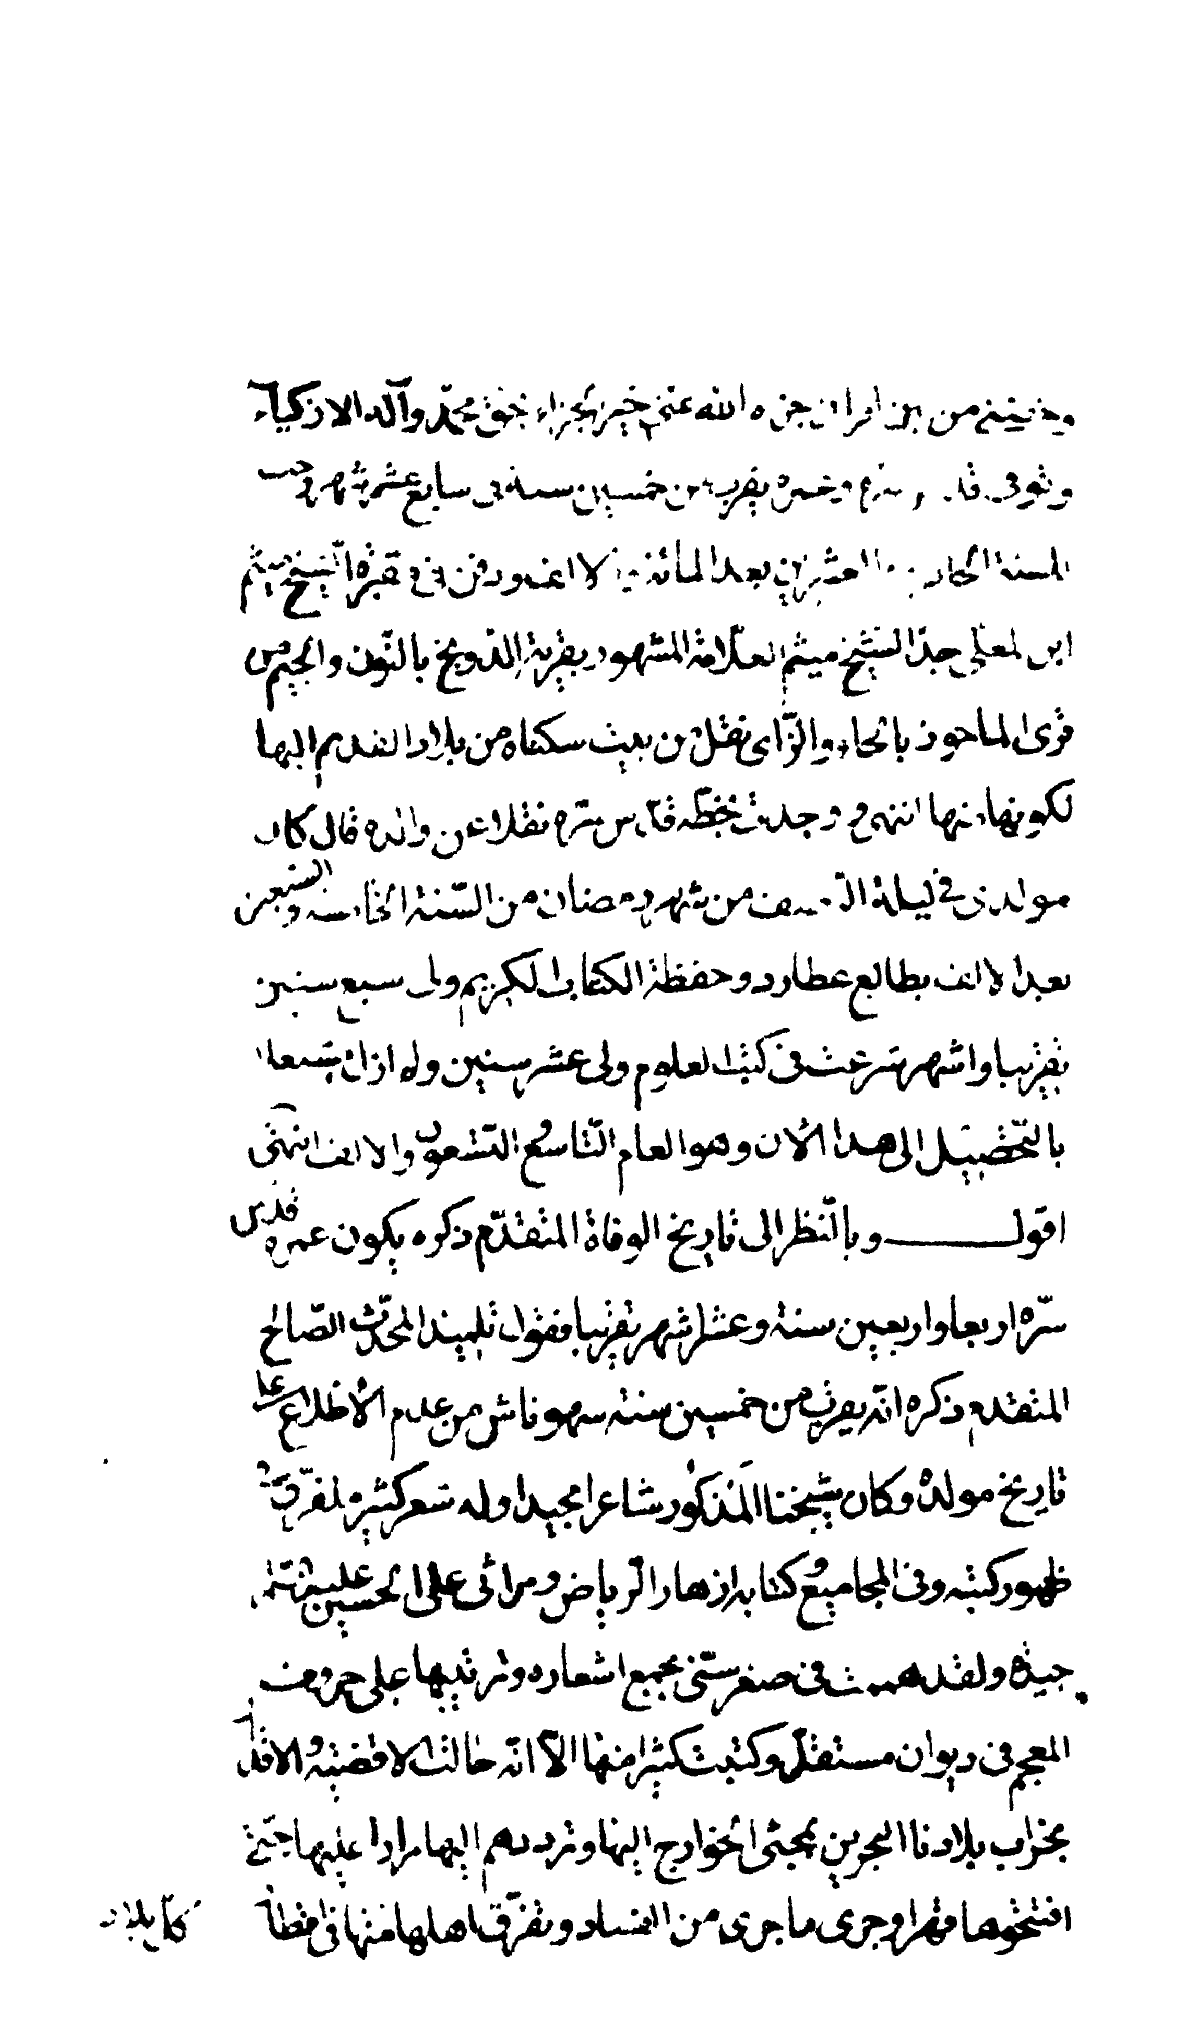 من بين ايران جزاه الله عني خير الجزاء بحق محمد وآله الازكياء
وتوفي قدس سره وعمره يقرب من خمسين سنة في سابع عشر شهر رجب
للسنة الحادية والعشرين بعد المائة والالف ودفن في مقبرة الشيخ ميثم
ابن المعلى جد الشيخ ميثم العلامة المشهور بقرية الدونج بالنون والجيم من
قرى الماحوذ بالحاء والزاى نقل من بيت سكناه من بلاد القديم اليها
لكونه منها انتهى ووجدت بخطه قدس سره نقلا عن والده قال كان
مولدى في ليلة النصف من شهر رمضان من السنة الخامسة والسبعين
بعد الالف بطالع عطارد وحفظة الكتاب الكريم ولى سبع سنين
تقريبا واشهر وشرعت في كتب العلوم ولى عشر سنين ولم ازل مشتغلا
بالتحصيل الى هذا الآن وهو العام التاسع والتسعون والالف انتهى
اقول وبالنظر الى تاريخ الوفاة المتقدم ذكره يكون عمره قدس
سره اربعا واربعين سنة وعشر اشهر تقريبا فقول تلميذ المحدث الصالح
المتقدم ذكره انه يقرب من خمسين سنة سهو ناش من عدم الاطلاع على
تاريخ مولده وكان شيخنا المذكور شاعرا مجيدا وله شعر كثير متفرق في
ظهور كتبه وفي المجاميع وكتابه ازهار الرياض ومراثى على الحسين عليه السلام
جيدة ولقد هممت في صغر سنى بجمع اشعاره وترتيبها على حروف
المعجم في ديوان مستقل وكتبت كثيرا منها الا انه حالت الاقضية والاقدار
بخراب بلادنا البحرين بمجئ الخوارج اليها وترددهم اليها مرارا عليها حتى
افتتحوها قهرا وجرى ما جرى من الفساد وتفرق اهلها منها في اقطار